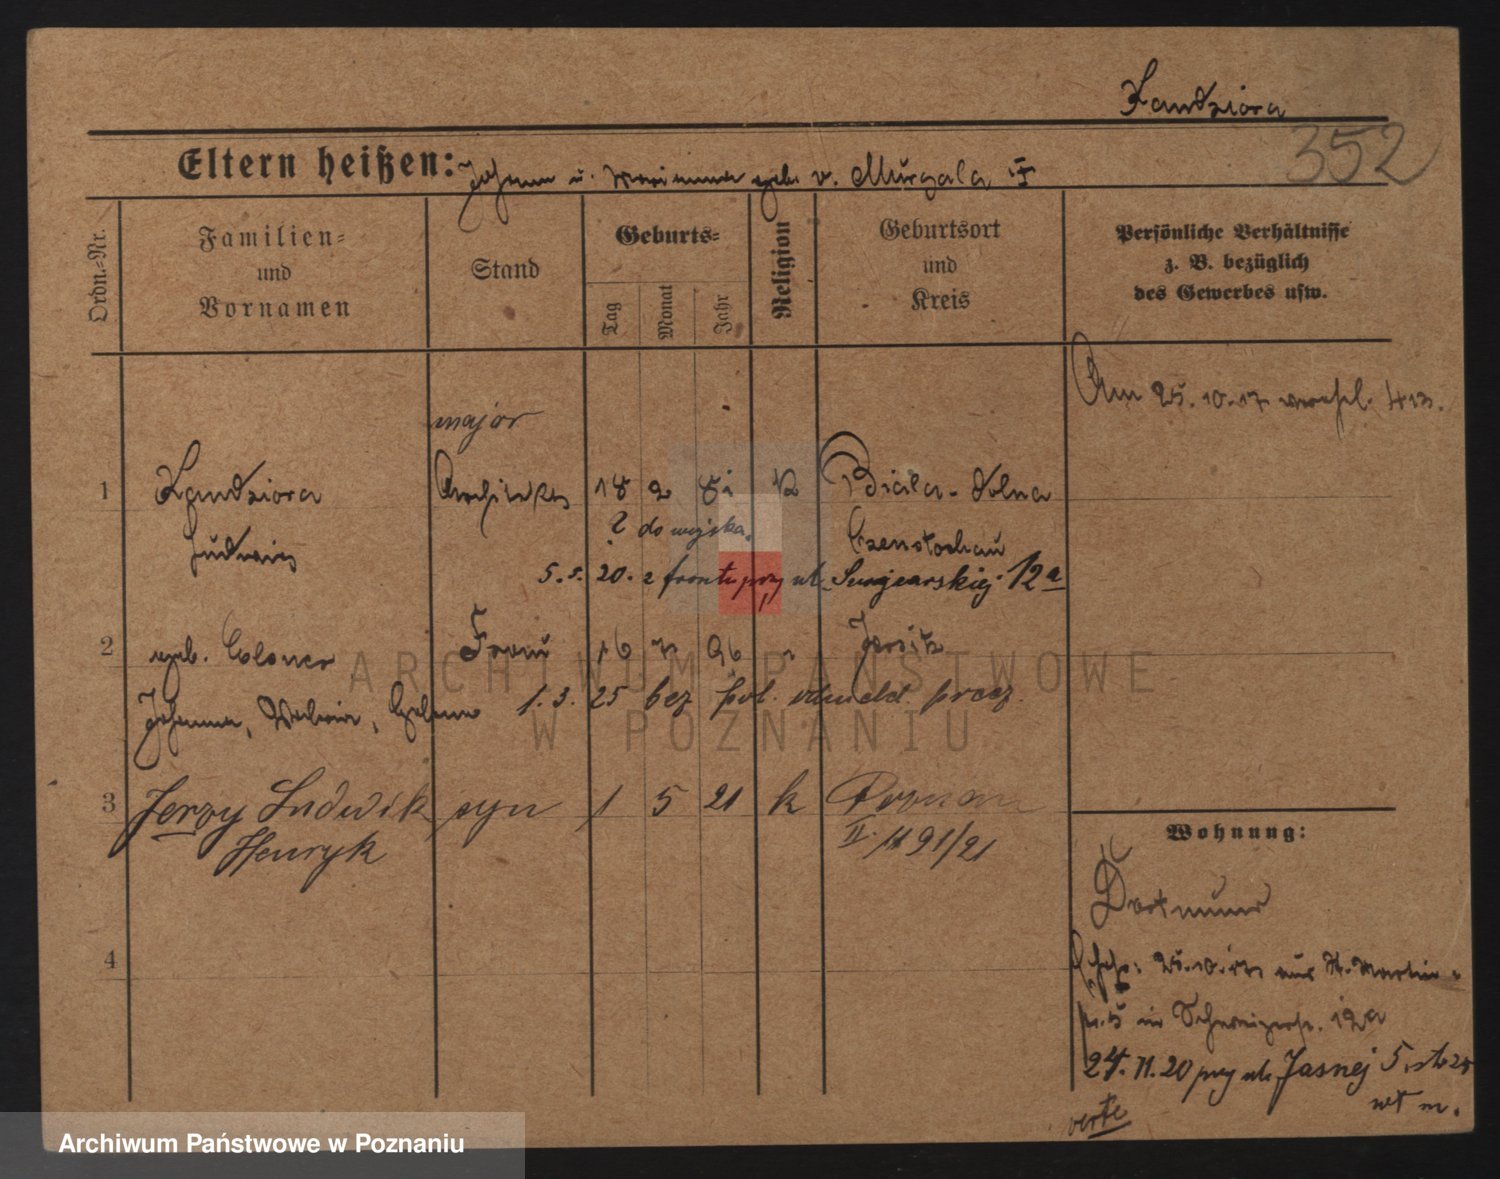 Kandziora
352
Eltern heißen: Johann u. Marianna geb. v. Murgala
Ordn.-Nr.
Familien-
und
Vornamen
Stand
Geburts-
Tag
Monat
Jahr
Religion
Geburtsort
und
Kreis
Persönliche Verhältnisse
z. B. bezüglich
des Gewerbes usw.
Am 25.10.17
major
1 Kandziora Architekt 18 2 8 Biala-Dolna
Ludwig
? do wojska. Czenstochau
5. 5. 20. z frontu przy ul. 12a
2 geb. Elsner Frau 16 96 Jersitz
Johanna, Helene 1. 3. 25 bez pol. odmeld. 
3 Jerzy Ludwik syn 1 5 21 k Poznań
Henryk II. 1191/21
4
Wohnung:
Dortmund
25.10.17 St. Martin
in 12a
24. 11. 20 przy ul. Jasnej 5
verte
ARCHIWUM PAŃSTWOWE
W POZNANIU
Archiwum Państwowe w Poznaniu